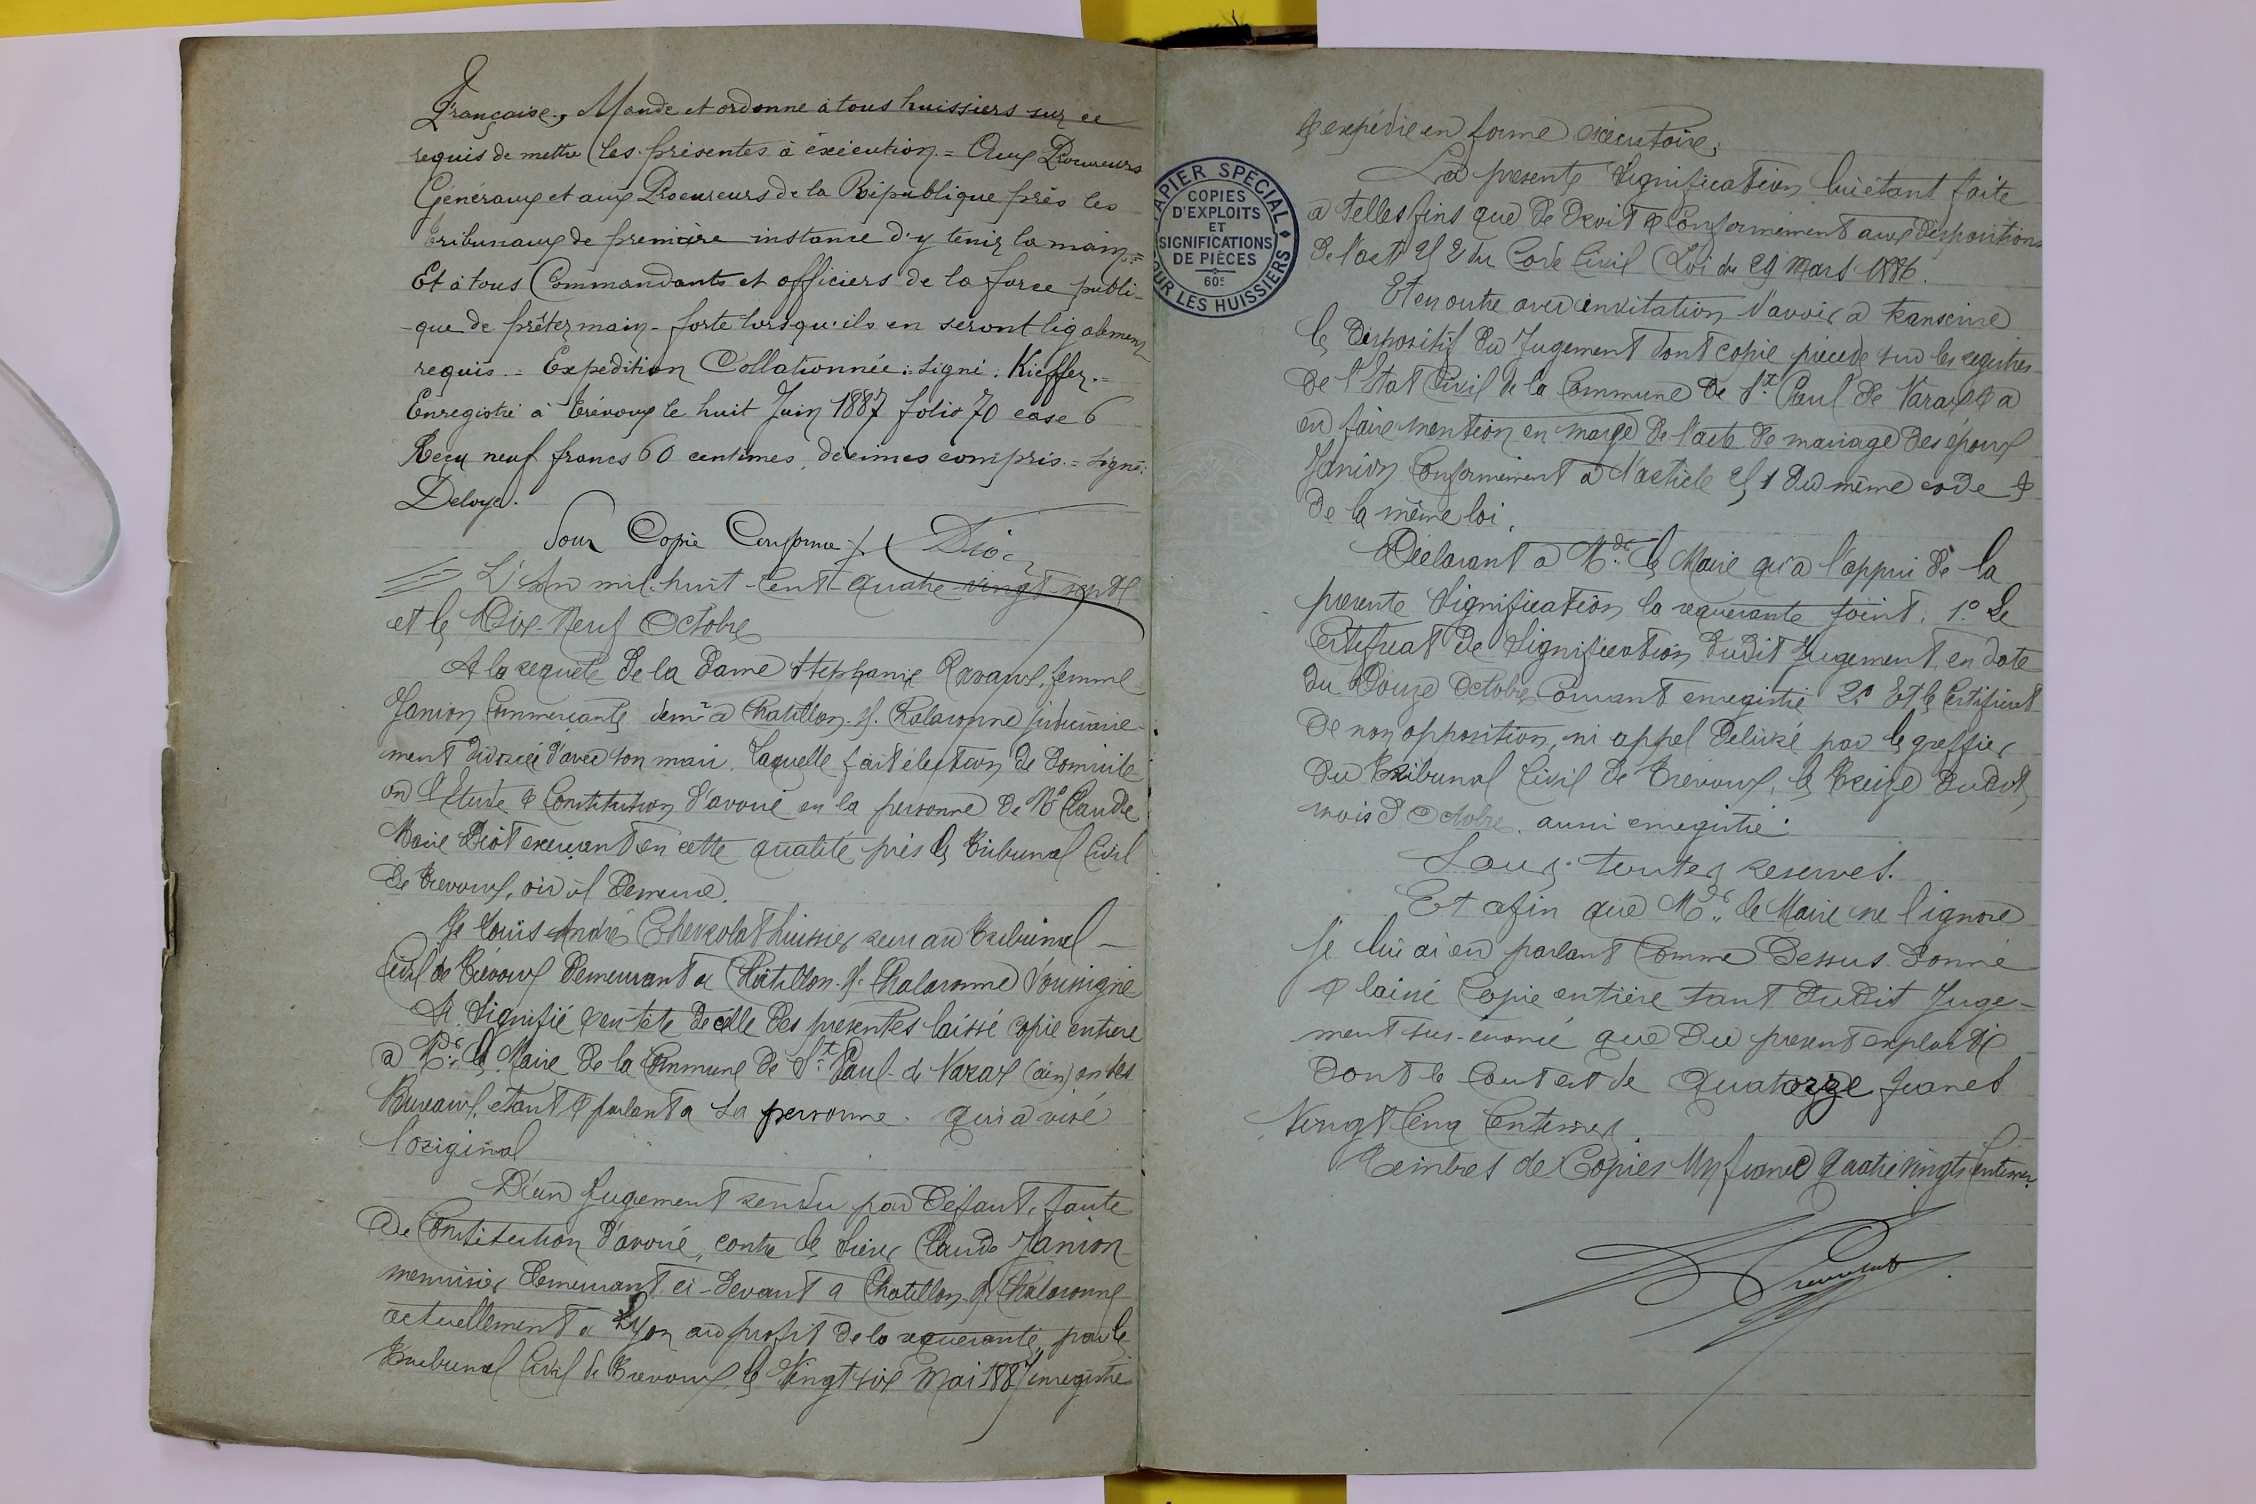 Française, Mande et ordonne à tous huissiers sur ce
requis de mettre les présentes à éxécution = Aux Procureurs
Généraux et aux Procureurs de la République près les
tribunaux de première instance d'y tenir la main =
Et à tous Commandants et officiers de la force publi-
-que de prêter main-forte lorsqu'ils en seront légalement
requis. = Expédition Collationnée: signé: Kieffer. =
Enregistré à Trévoux le huit Juin 1887 folio 70 case 6
Reçu neuf francs 60 centimes, décimes compris. = signé:
Deloye.
Pour Copie Conforme
L'An mil huit cent quatre vingt sept
et le Dix-Neuf Octobre
A la requête de la Dame Stéphanie Ravaux, femme
Janion Commerçante demt a Chatillon-s/-Chalaronne judiciaire-
ment divorcée d'avec son mari. Laquelle fait élection de domicile
en l'Etude & Constitution d'avoué en la personne de Me Claude
Marie Diot exerçant en cette qualité près le Tribunal Civil
de Trevoux, où il demeure.
Je Louis André huissier au Tribunal
Civil de Trévoux demeurant a Châtillon-s/-Chalaronne soussigné
Ai signifié & en tête de celle des présentes laissé copie entiere
a Mr le Maire de la Commune de St Paul-de Varax (ain) en ses
Bureaux, étant & parlant a sa personne. qui a visé
l'original
D'un jugement rendu par défaut, faute
de Constitution d'avoué, contre le sieur Claude Janion
menuisier demeurant ci-devant a Chatillon s/ Chalaronne
actuellement a Lyon au profit de la requérante, par le
Tribunal Civil de Trevoux, le Vingt six Mai 1887 enregistré
& expédié en forme exécutoire,
PAPIER SPECIAL
COPIES
D'EXPLOITS
ET
SIGNIFICATIONS
DE PIÈCES
60c
POUR LES HUISSIERS
La présente signification lui étant faite
a telles fins que de droit & Conformément aux dispositions
de l'art 252 du Code Civil (Loi du 29 Mars 1886.
Et en outre avec invitation d'avoir a transcrire
le dispositif du Jugement dont copie précède sur les registres
de l'Etat Civil de la Commune de St Paul de Varax & a
en faire mention en marge de l'acte de mariage des époux
Janion Conformément a l'article 251 du même code &
de la même loi.
Déclarant a Mr le Maire qu'a l'appui de la
presente signification la requerante joint. 1o Le
Certificat de signification dudit Jugement, en date
du Douze Octobre Courant enregistré 2o Et le Certificat
de non opposition, ni appel délivré par le greffier
du Tribunal Civil de Trevoux, le treize dudit
mois d'Octobre, aussi enregistré.
Sous toutes reserves.
Et afin que Mr le Maire ne l'ignore
Je lui ai en parlant comme dessus donné
& laissé Copie entière tant dudit Juge-
ment sus-énoncé que du present exploit
Dont le Cout est de Quatorze francs
Vingt Cinq Centimes
Timbres de Copies Un franc Quatre vingts Centimes